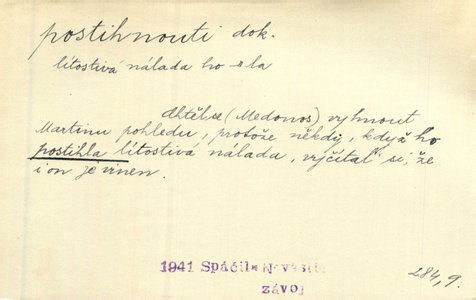 postihnouti dok.
lítostivá nálada ho -la
chtěl se (Medonos) vyhnout
Martinu pohledu, protože někdy, když ho
postihla lítostivá nálada, vyčítal si, že
i on je vinen.
1941 Spáčil
závoj
284,9.